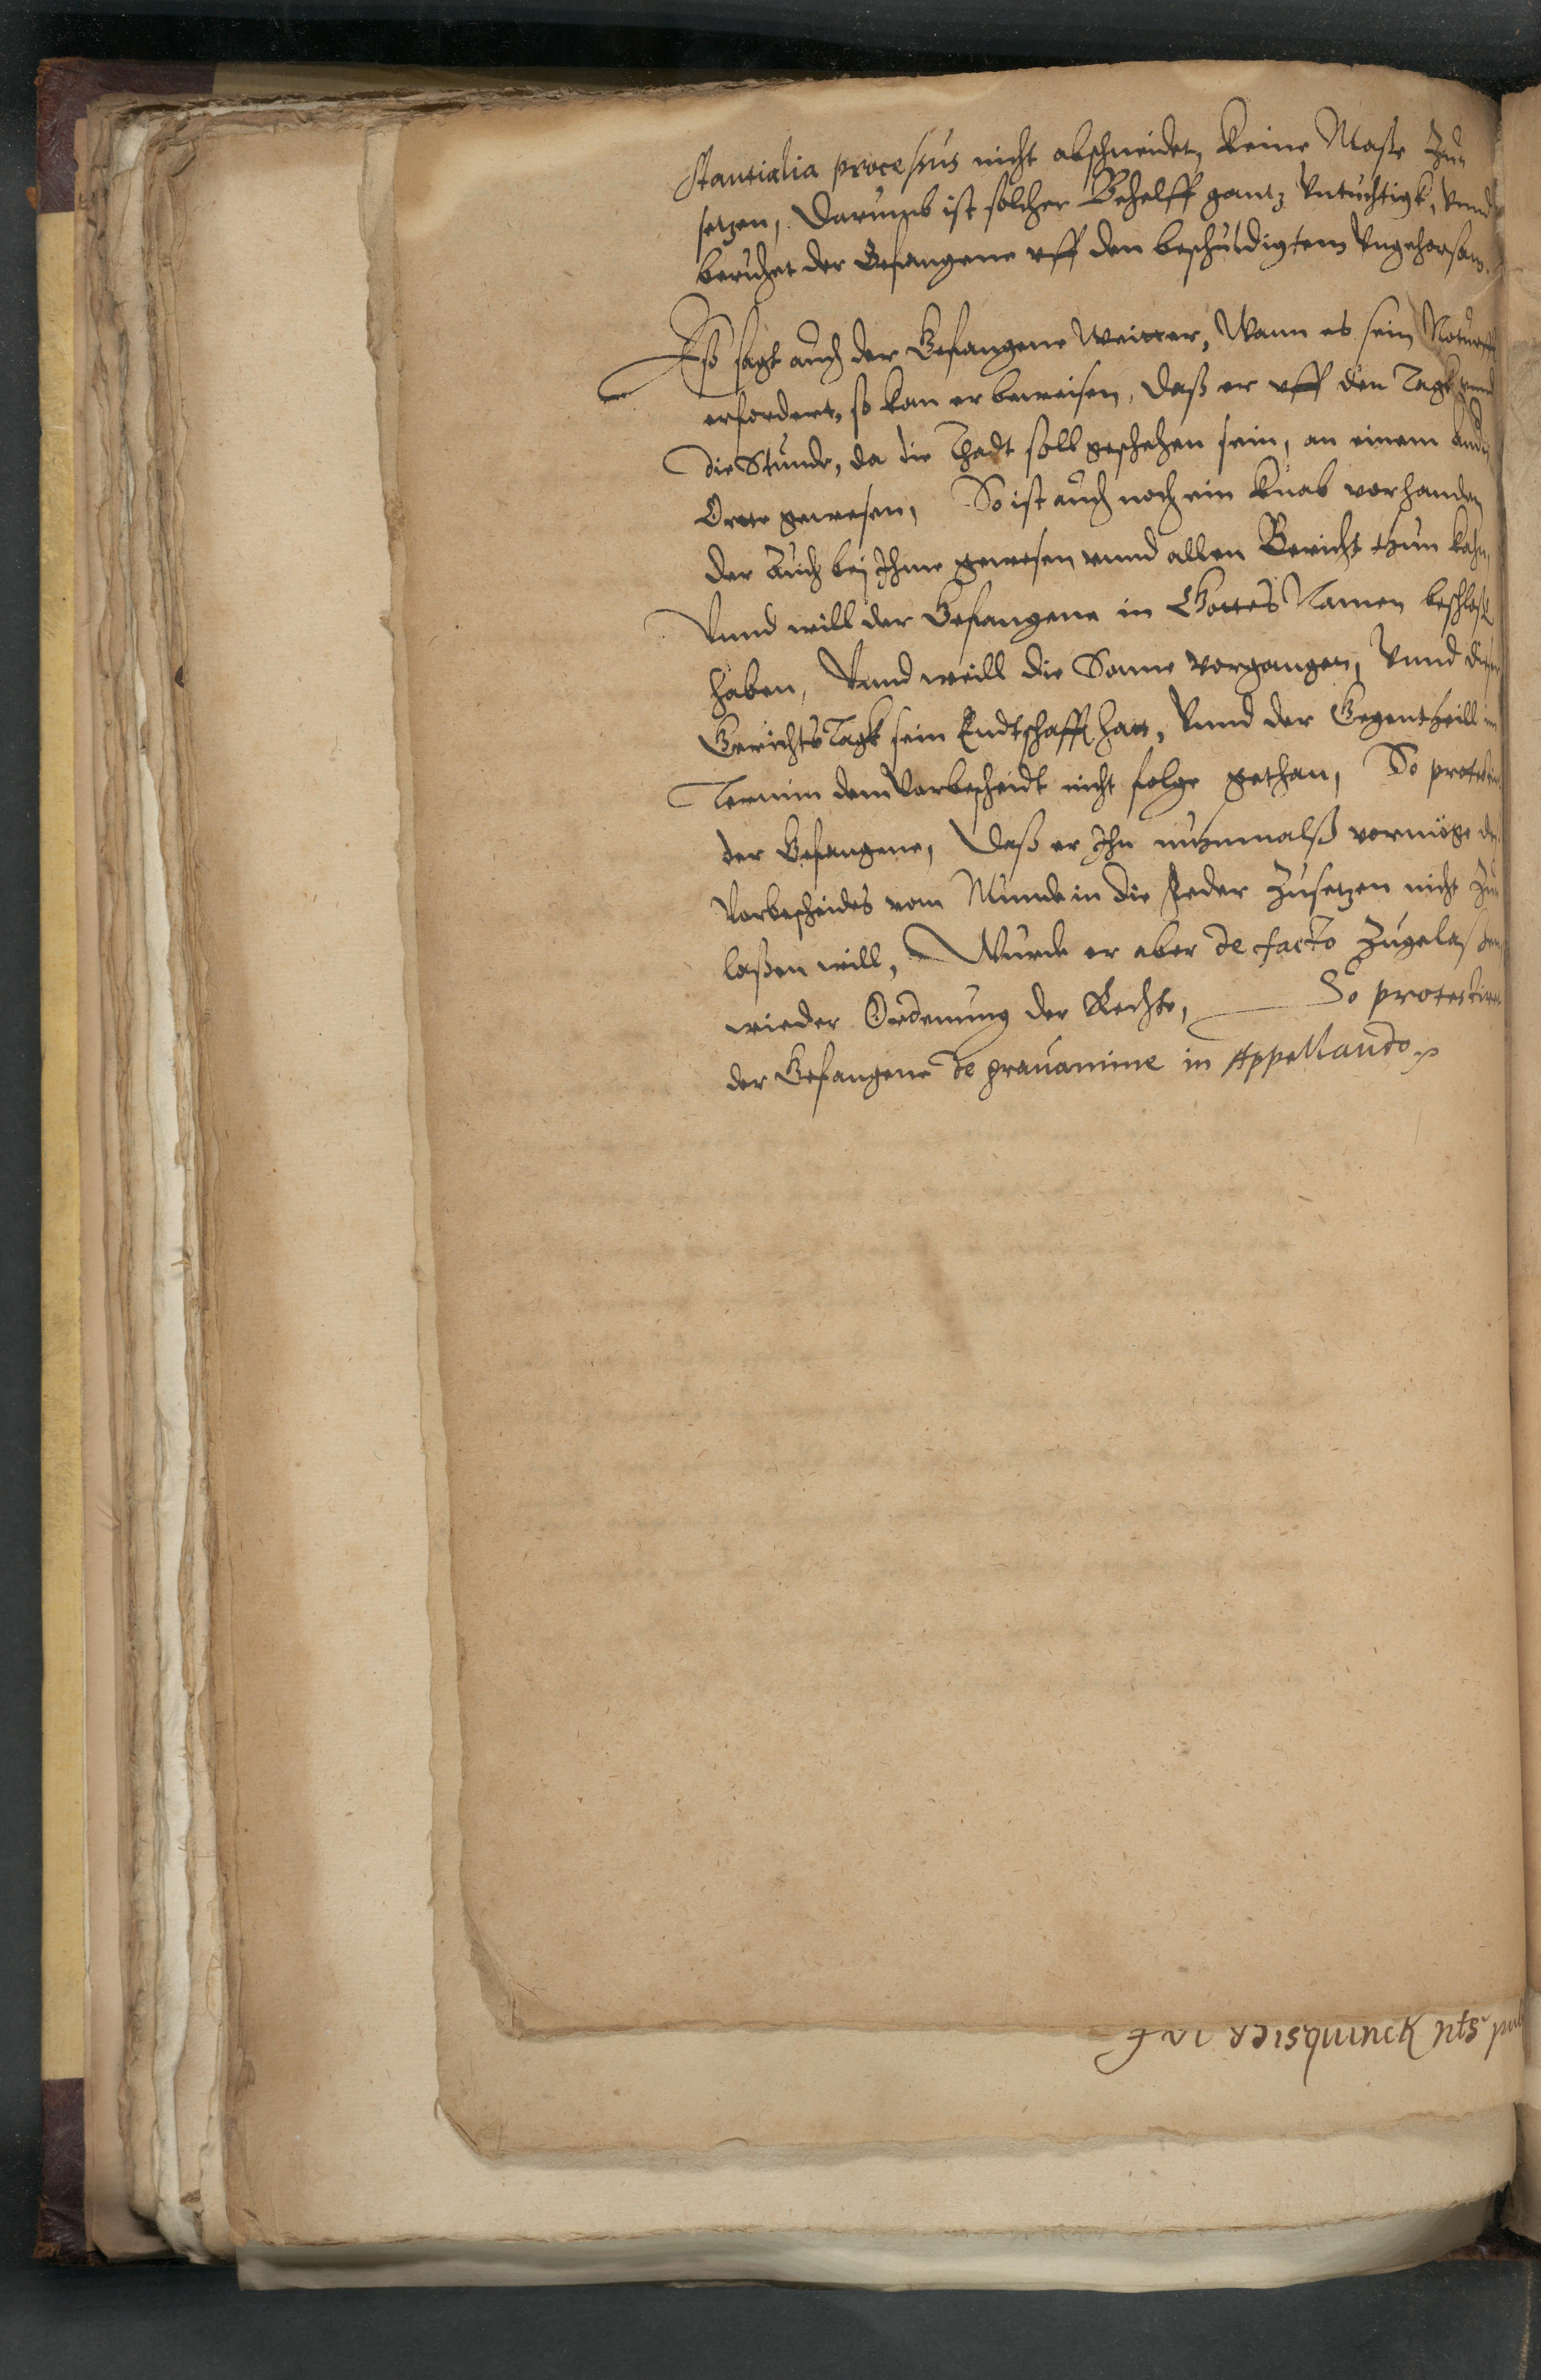 stantialia processus nicht abschneidet, keine Maße zu
setzen, Darumb ist solcher Behelff gantz vntüchtigk, vnnd
beruhet der Gefangene vff den beschuldigtem Vngehorsam.
Eß sagt auch der Gefangene Weitter, Wann es sein Noturfft
erfordert, so kan er beweisen, daß er vff den Tagk vnnd
die Stunde, da die Thadt soll geschehen sein, an einem Andn
Ortte gewesen, So ist auch noch ein Knab vorhanden
der Auch bej Ihme gewesen vnnd allen Bericht thun kahn,
Vnnd will der Gefangene in Gottes Namen beschloß
haben, Vnnd weill die Sonne vorgangen, Vnnd dieser
Gerichts Tagk sein Endtschafft hatt, Vnnd der Gegentheill im
Termin dem Vorbescheidt nicht folge gethan, So protestirt
der Gefangene, Daß er Ihn nuhnmalß vermöge des
Vorbescheides vom Munde in die Feder zusetzen nicht zu
laßen will, Wurde er aber de facto zugelaßen,
wieder Ordenung der Rechte, So protestiret
der Gefangene de grauamine in Appellando
Bisquinck nts pub